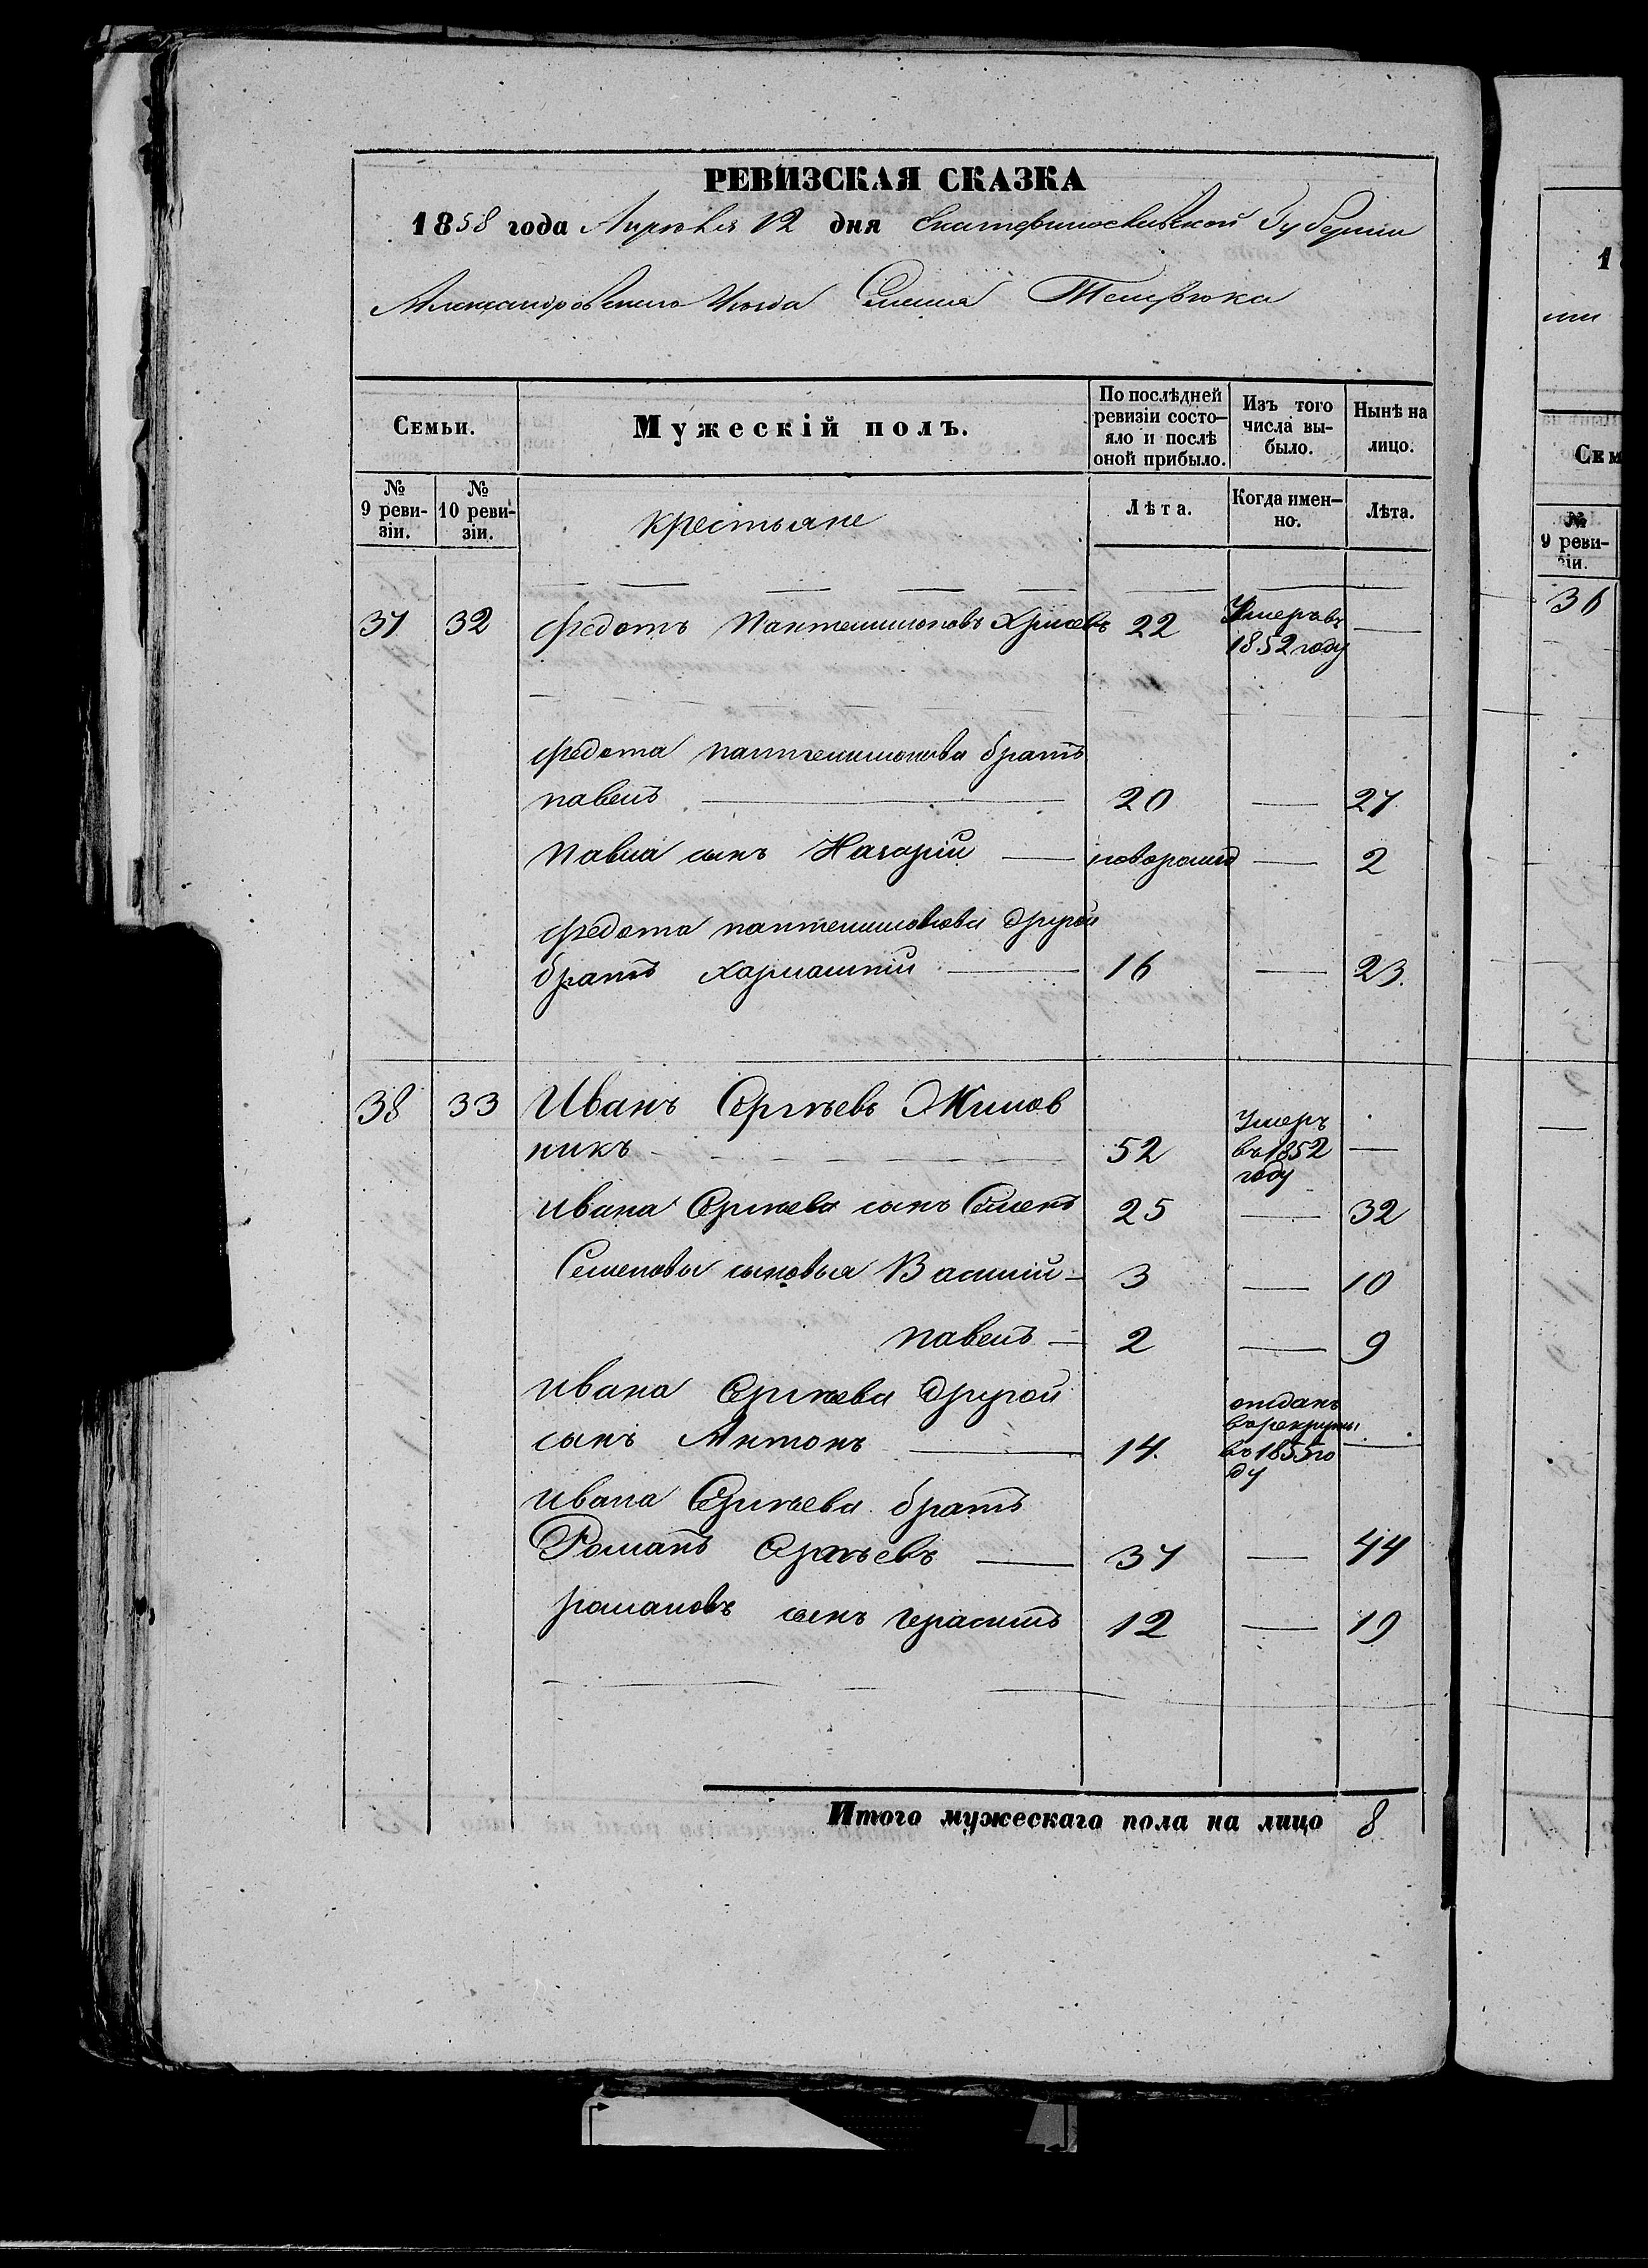 РЕВИЗСКАЯ СКАЗКА
1858 года Апрѣля 12 дня Екатеринославской Губернiи
Александровскаго Уѣзда Селенiя
Семьи. Мужескiй полъ. По послѣдней ревизiи состо-яло и послѣ оной прибыло. Изъ того числа вы-было. Нынѣ на лицо.
№ 9 реви-зiи. № 10 реви-зiи. крестьяне Лѣта. Когда имен-но. Лѣта.
37 32 Федотъ Пантелимоновъ 22 Умеръ въ 1852 году —
Федота пантелимонова братъ
павелъ — 20 — 27
павла сынъ Назарiй — новорожд — 2
Федота пантелимонова другой
братъ харлампiй — 16 — 23.
38 33 Иванъ Сергѣевъ Жилов
никъ — 52 Умеръ въ 1852 году —
ивана Сергѣева сынъ Семенъ 25 — 32
Семеновы сыновья Василiй — 3 — 10
павелъ — 2 — 9
ивана Сергѣева другой
сынъ Антонъ — 14. отданъ въ рекруты въ 1855 го ду —
ивана Сергѣева братъ
Романъ Сергѣевъ — 37 — 44
романовъ сынъ герасимъ 12 — 19
Итого мужескаго пола на лицо 8
1
Сем
№
9 реви-
зiи.
36